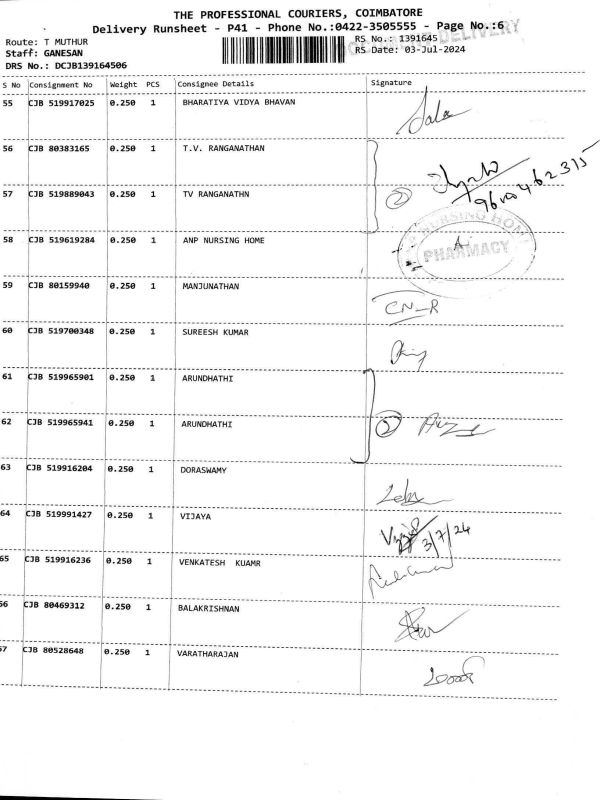 THE PROFESSIONAL COURIERS, COIMBATORE
Delivery Runsheet - P41 - Phone No.:0422-3505555 - Page No.:6
DELIVERY
Route: T MUTHUR
RS No.: 1391645
Staff: GANESAN
RS Date: 03-Jul-2024
DRS No.: DCJB139164506
S No Consignment No Weight PCS Consignee Details Signature
55 CJB 519917025 0.250 1 BHARATIYA VIDYA BHAVAN
56 CJB 80383165 0.250 1 T.V. RANGANATHAN
2
9600462315
57 CJB 519889043 0.250 1 TV RANGANATHN
58 CJB 519619284 0.250 1 ANP NURSING HOME
NURSING HOME
PHARMACY
59 CJB 80159940 0.250 1 MANJUNATHAN
CN-R
60 CJB 519700348 0.250 1 SUREESH KUMAR
61 CJB 519965901 0.250 1 ARUNDHATHI
62 CJB 519965941 0.250 1 ARUNDHATHI
2
63 CJB 519916204 0.250 1 DORASWAMY
64 CJB 519991427 0.250 1 VIJAYA
3/7/24
65 CJB 519916236 0.250 1 VENKATESH KUAMR
66 CJB 80469312 0.250 1 BALAKRISHNAN
67 CJB 80528648 0.250 1 VARATHARAJAN